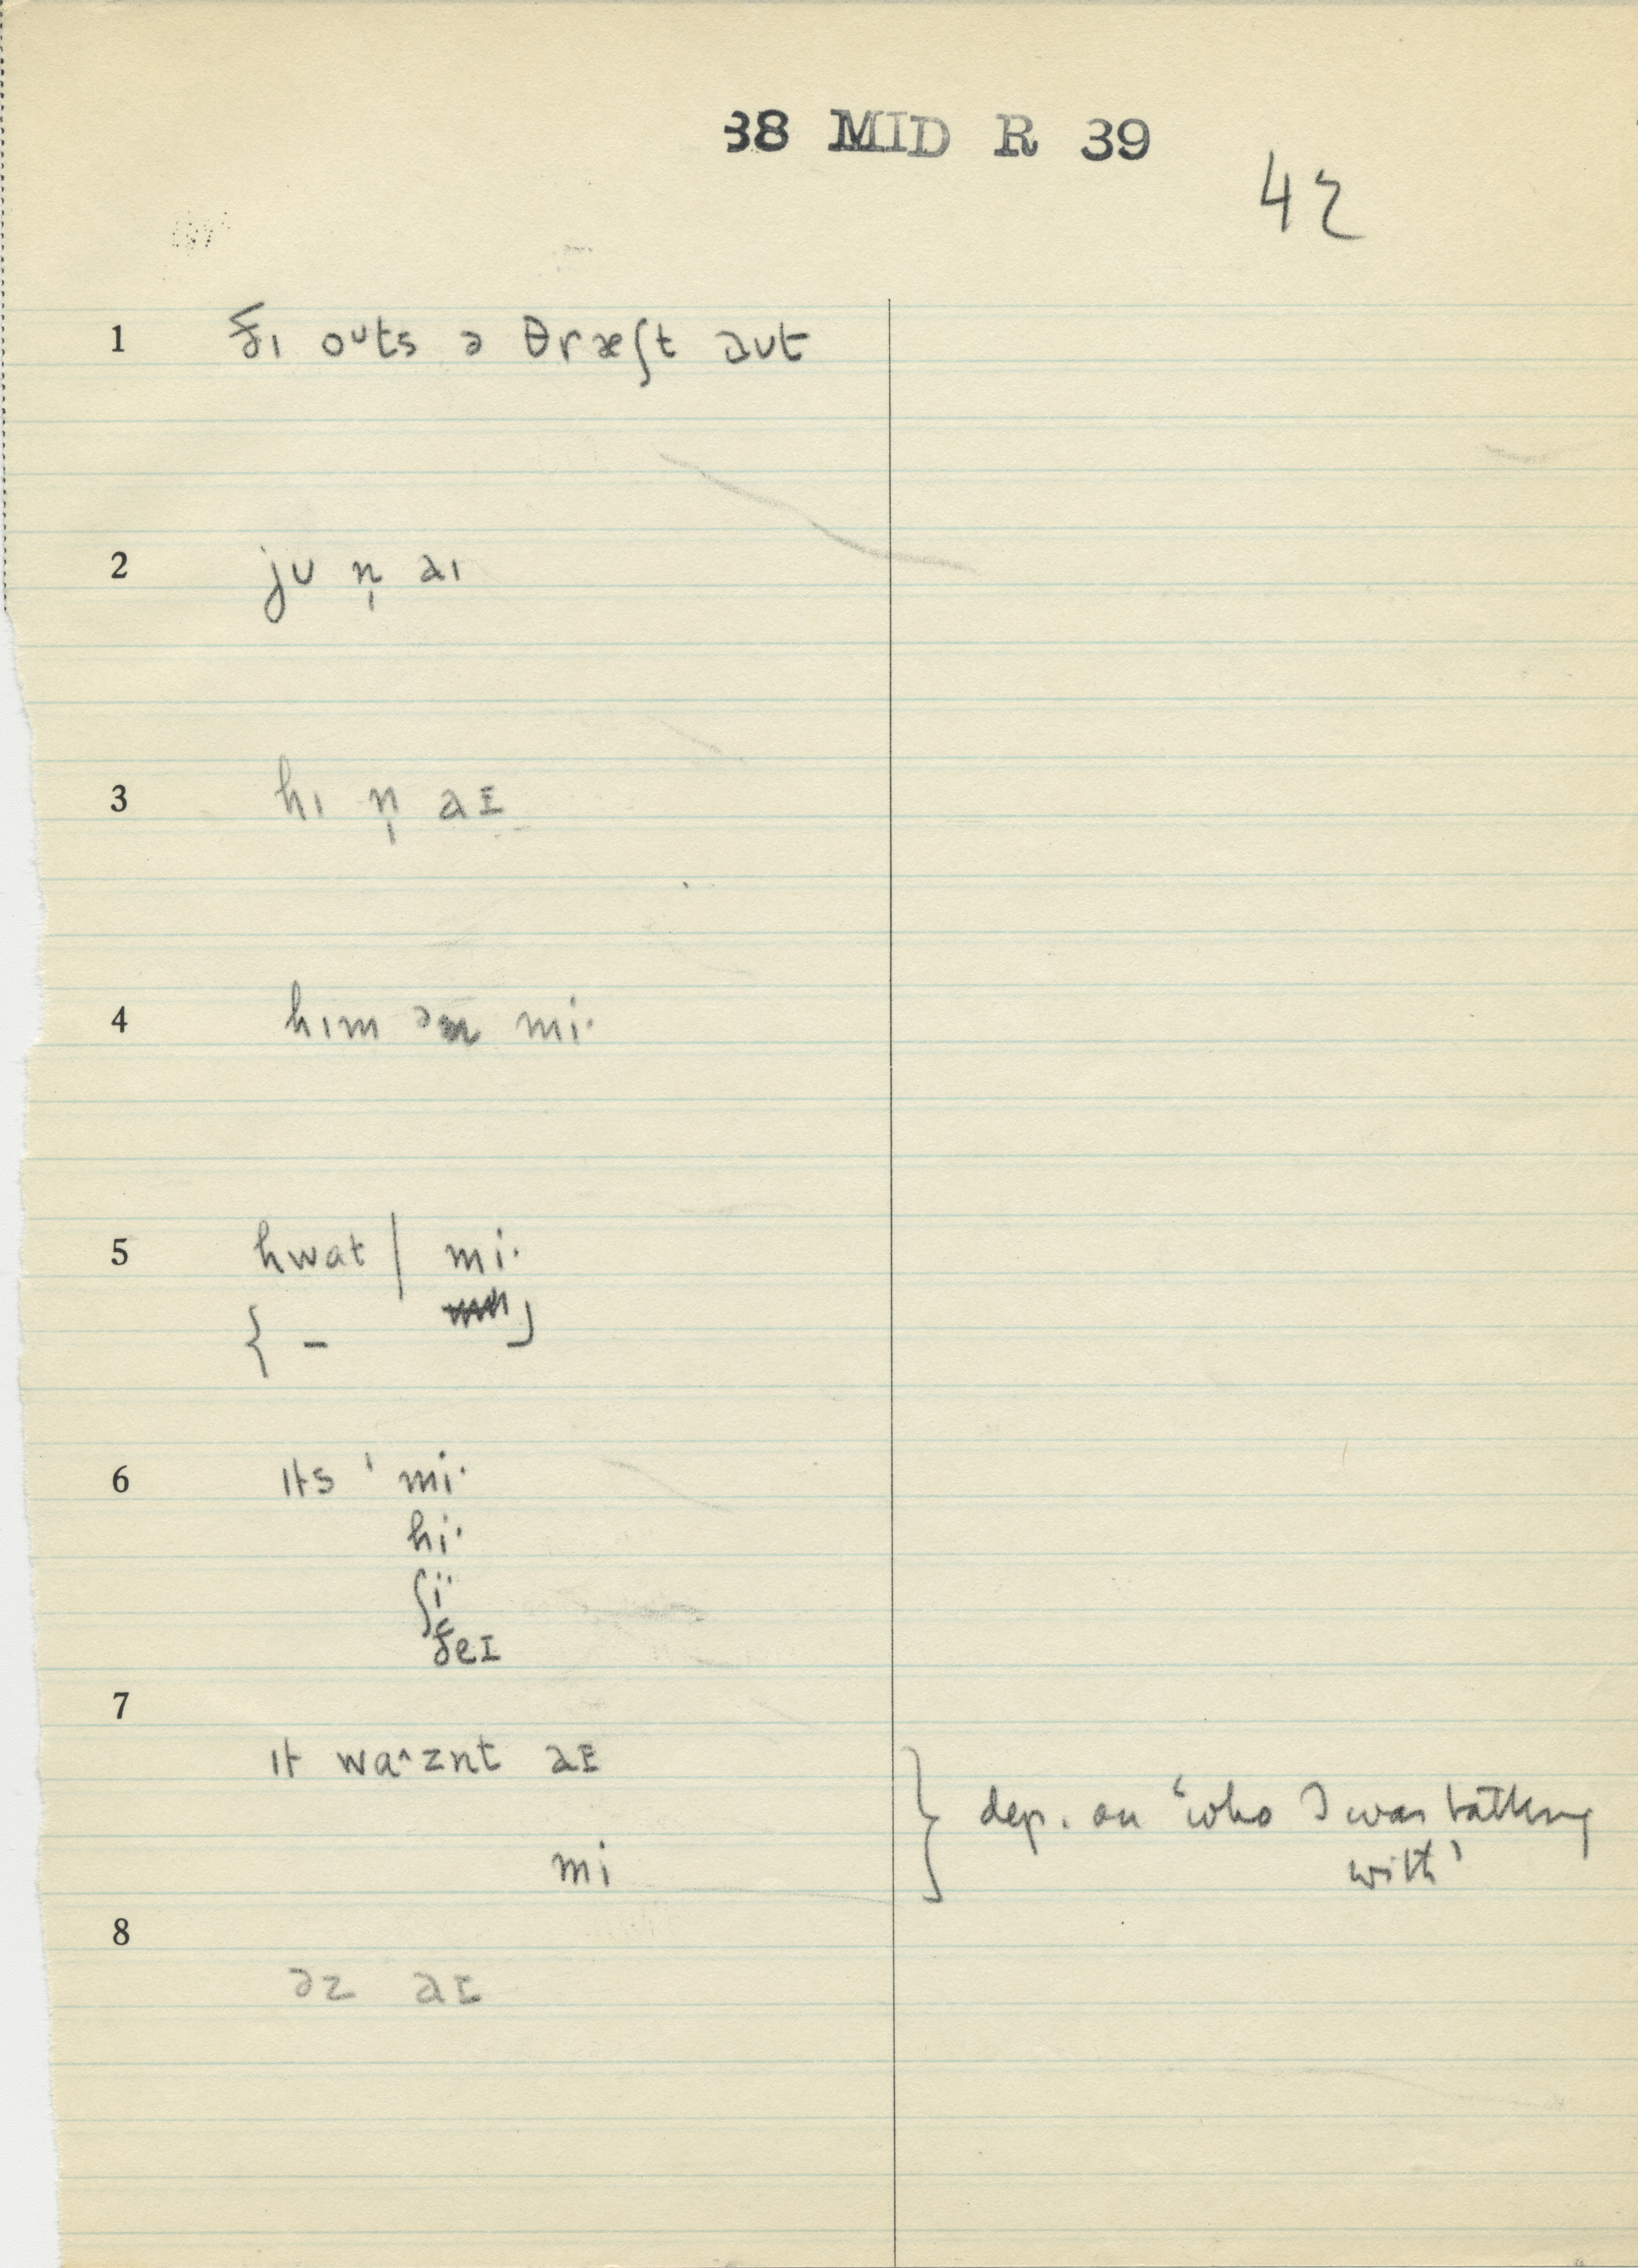 38 MID R 39
42
1 ðɪ oᴜts ə θræʃt aᴜt
2 jᴜ n̩ aɪ
3 hɪ n̩ aɪ
4 hɪm ən mi·
5 hwat | mi·
{ –
6 ɪts ' mi·
hi·
ʃi·
ðeɪ
7
ɪt waˆznt aɪ
mi
} dep. on 'who I was talking
with'
8
əz aɪ